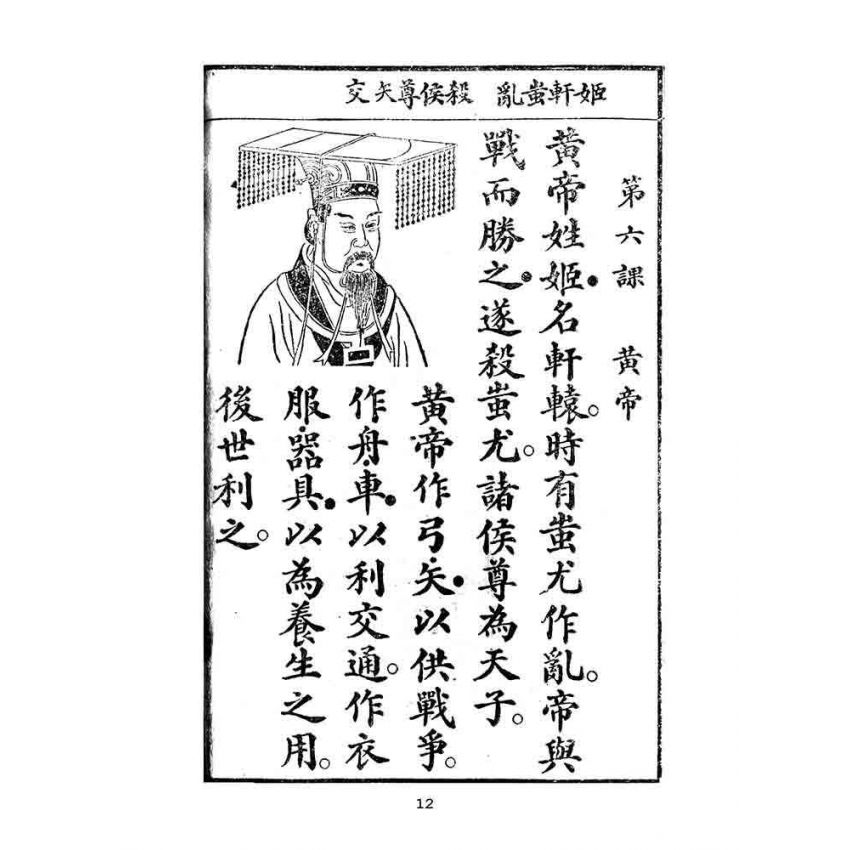 姬軒蚩亂 殺侯尊矢交
第六課 黄帝
黄帝姓姬●名軒轅。時有蚩尤作亂。帝與
戰而勝之●遂殺蚩尤。諸侯尊為天子。
黄帝作弓·矢●以供戰爭。
作舟·車●以利交通。作衣
服·器具●以為養生之用。
後世利之。
12